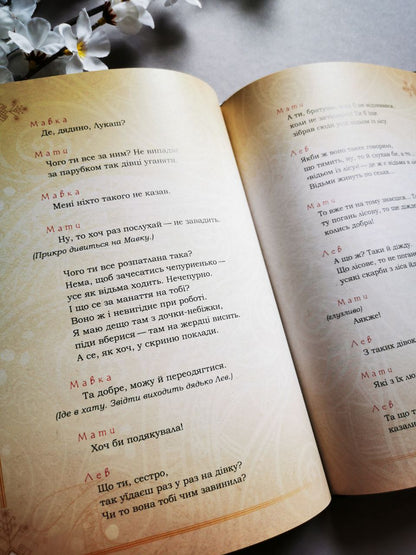 Мавка
Де, дядино, Лукаш?
Мати
Чого ти все за ним? Не випадає
за парубком так дівці уганяти.
Мавка
Мені ніхто такого не казав.
Мати
Ну, то хоч раз послухай — не завадить.
(Прикро дивиться на Мавку.)
Чого ти все розпатлана така?
Нема, щоб зачесатись чепурненько —
усе як відьма ходить. Нечепурно.
І що се за манаття на тобі?
Воно ж і невигідне при роботі.
Я маю дещо там з дочки-небіжки,
піди вберися — там на жердці висить.
А се, як хоч, у скриню поклади.
Мавка
Та добре, можу й переодягтися.
(Іде в хату. Звідти виходить дядько Лев.)
Мати
Хоч би подякувала!
Лев
Що ти, сестро,
так уїдаєш раз у раз на дівку?
Чи то вона тобі чим завинила?
Мати
А ти, братуню,
коли не
зібрав сюди
Лев
Якби ж воно таке говорила,
що тямить, ну, то й
«відьом із лісу»
Відьми живуть по селах.
Мати
То вже ти на тому
ту погань лісову, то ще
колись добра!
Лев
А що ж? Таки й
Що лісове, то не погане
усякі скарби з ліса
Мати
(глузливо)
Аякже!
Лев
З таких дівок
Мати
Які з їх
Лев
Та що
казали